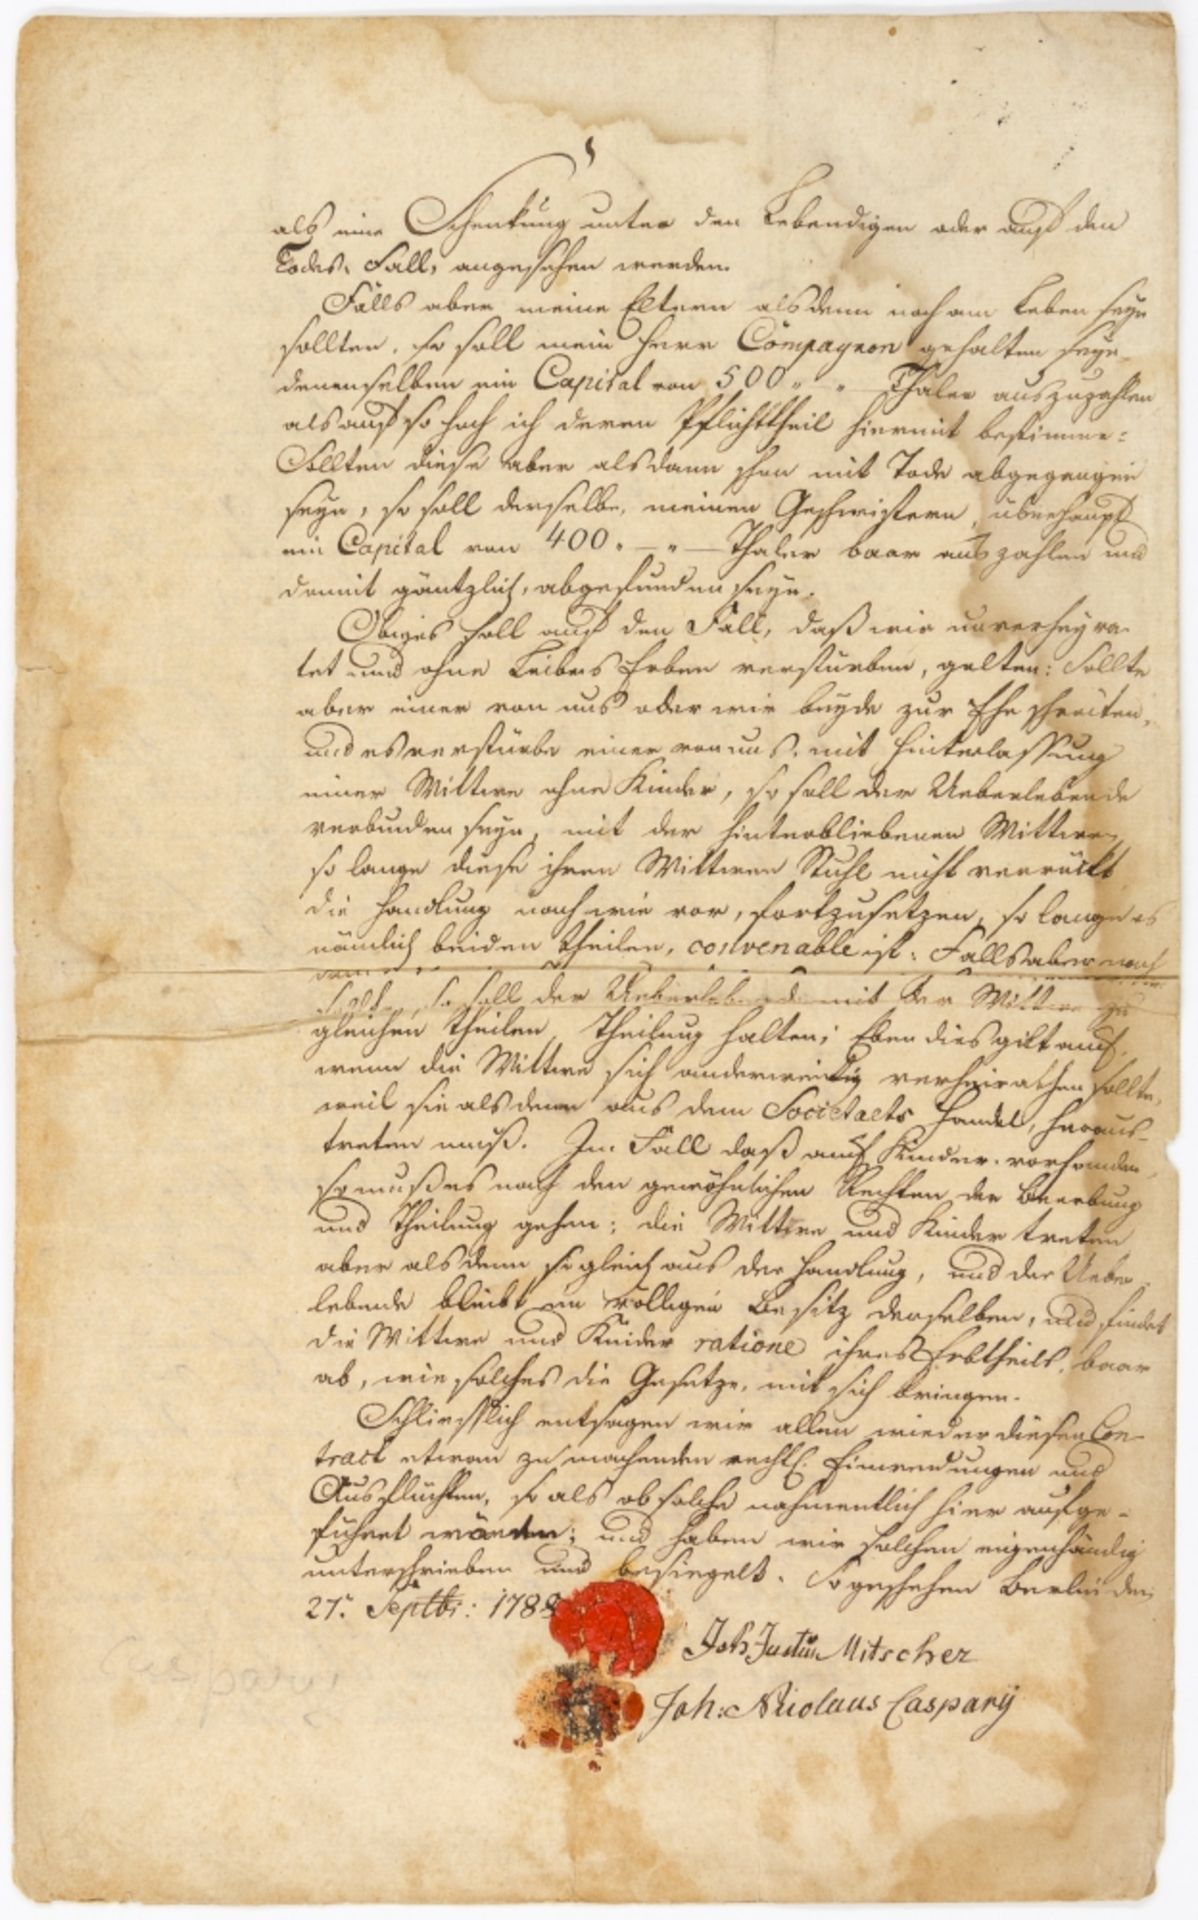 als eine Schenkung unter den Lebendigen oder auf den
Todes-Fall, angesehen werden.
Falls aber meine Eltern alsdenn noch am Leben seyn
sollten, so soll mein Herr Compagnon gehalten seyn
denenselben ein Capital von 500 " — " Thaler auszuzahlen
als auf so hoch ich deren Pflichttheil hiermit bestimme:
Sollten diese aber alsdann schon mit Tode abgegangen
seyn, so soll derselbe, meinen Geschwistern, überhaupt
ein Capital von 400 " — " — Thaler baar auszahlen und
damit gäntzlich, abgefunden seyn.
Obiges soll auf den Fall, daß wir unverheyra-
tet und ohne Leibes Erben verstürben, gelten: Sollte
aber einer von uns oder wir beyde zur Ehe schreiten,
und es verstürbe einer von uns, mit Hinterlassung
einer Wittwe ohne Kinder, so soll der Ueberlebende
verbunden seyn, mit der hinterbliebenen Wittwe,
so lange diese ihren Wittwen Stuhl nicht verrückt
die Handlung nach wie vor, fortzusetzen, so lange es
nämlich beiden Theilen, convenable ist: Falls aber
so soll der Ueberlebende mit der Wittwe zu
gleichen Theilen, Theilung halten; Eben dies gilt auch,
wenn die Wittwe sich anderweitig verheirathen sollte,
weil sie alsdenn aus dem Societaets Handel, heraus-
treten muß. Im Fall daß auch Kinder, vorhanden,
so muß es nach den gewöhnlichen Rechten der Beerbung
und Theilung gehen; die Wittwe und Kinder treten
aber alsdenn sogleich aus der Handlung, und der Ueber-
lebende bleibt im völligen Besitz derselben, und findet
die Wittwe und Kinder ratione ihres Erbtheils, baar
ab, wie solches die Gesetze, mit sich bringen.
Schliesslich entsagen wir allen wieder diesen Con-
tract etwan zu machenden rechtl. Einwendungen und
Ausflüchten, so als ob solche nahmentlich hier aufge-
führet wären; und haben wir solchen eigenhändig
unterschrieben und besiegelt. So geschehen Berlin den
27. Septbr: 1788
Joh Justus Mitscher
Joh: Nicolaus Caspary